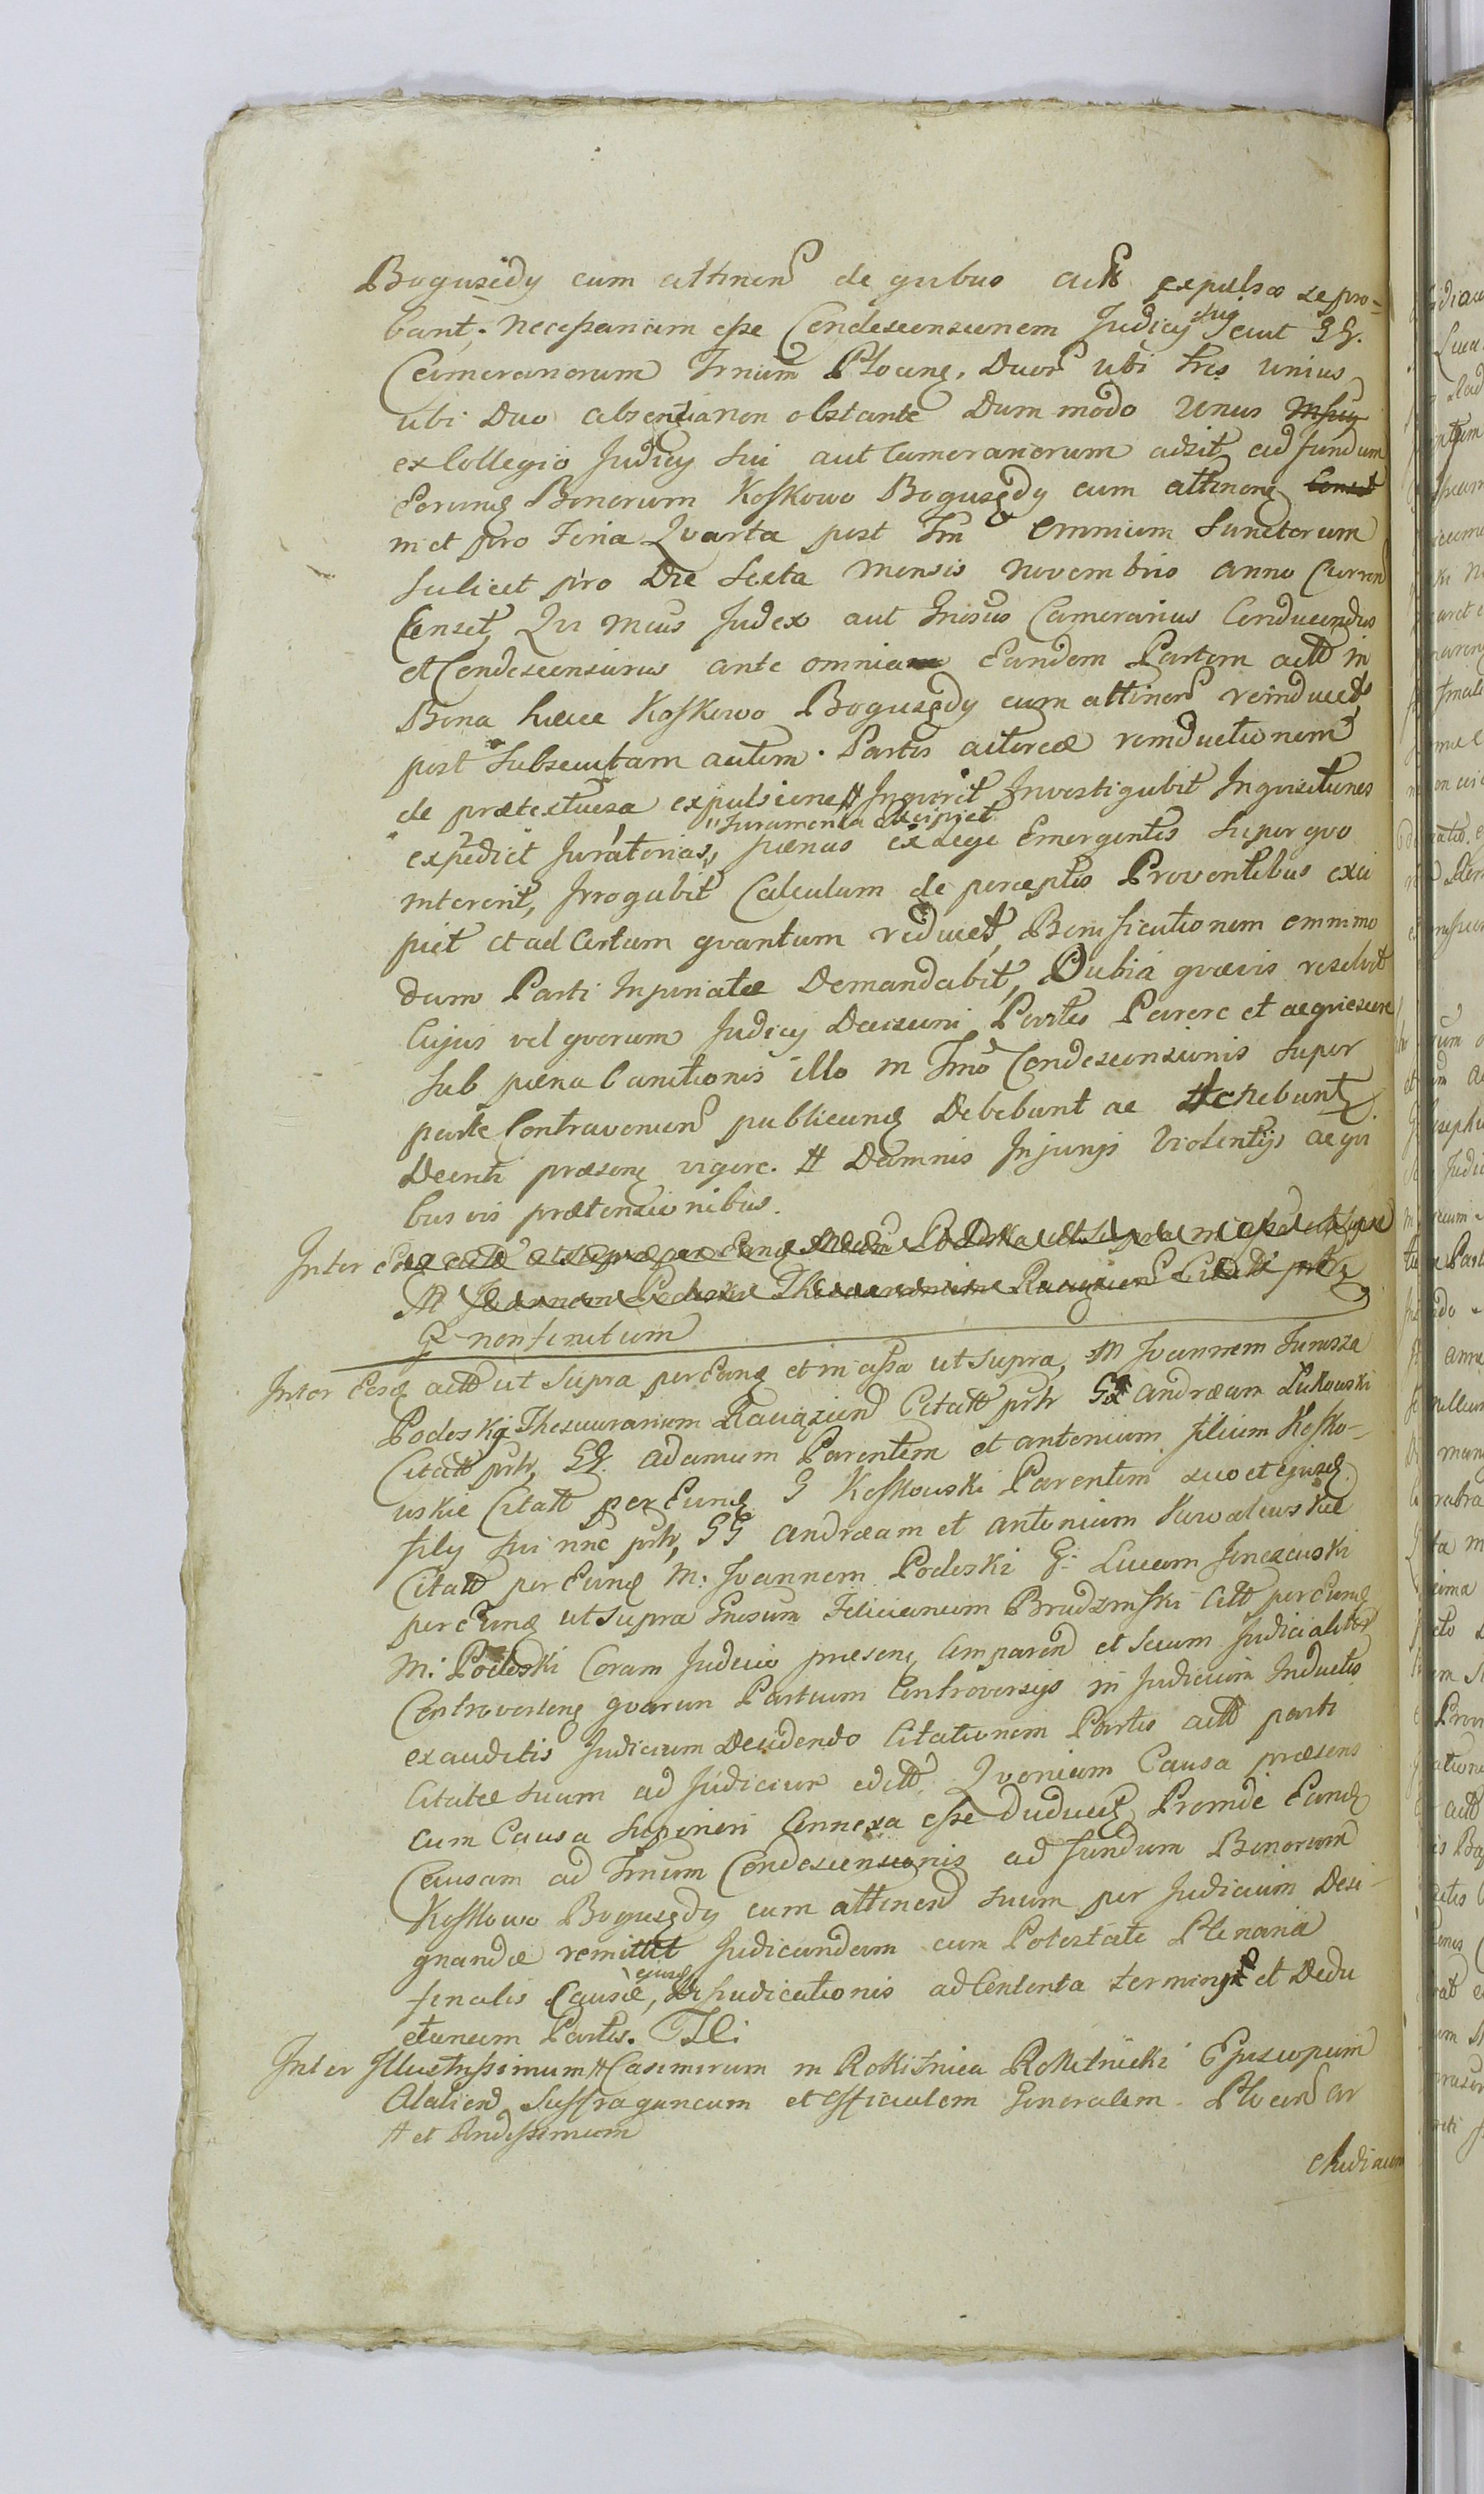 Bogusędy cum attinen de quibus actt expulsos se pro-
bant, necessariam esse Condescensionem Judicij sui aut GG.
Camerariorum Trium Plocens. Duor ubi tres unius
ubi Duo absentia non obstante Dum modo Unus
ex Collegio Judicij sui aut Camerariorum adsit ad fundum
eorund Bonorum Kosskowo Bogusędy cum attinens
in et pro Feria Quarta post Fm Omnium Sanctorum
scilicet pro Die Sexta mensis Novembris anno Curren
Censet, Qui Judex aut Gnosus Camerarius Conducendus
et Condescensurus ante omnia Eandem Partem actt in
Bona haece Kosskowo Bogusędy cum attinen reinducet,
post subsecutam autem Partis actoreæ reinductionem
de prætextuosa expulsione # Inquiret Investigabit Inquisitiones
expediet Juratorias, pænas ex Lege Emergentes super quo
"Juramenta Excipiet
intererit, Irrogabit Calculum de perceptis Proventibus exci
piet et ad Certum quantum reducet, Bonificationem omnimo
dam Parti Injuriatæ Demandabit, Dubia quævis resolvet
Cujus vel quorum Judicij Decisioni Partes Parere et acquiescere
sub pæna banitionis illo in Tmo Condescensionis super
parte Contravenien publicand Debebunt ac tenebunt
Decreti præsens vigore. # Damnis Injurijs Violentijs ac qui
bus vis prætensionibus.
Inter Eosd actt ut supra per Eund
M Joannem Podoski Thesaurarium Raciązien Citatt prtr
G nonfinitum
Inter Eosd actt ut supra per Eund et in assa ut supra, M Joannem Junosza
Podoski Thesaurarium Raciązien Citatt prtr G andræam Łukowski
Citatt prtr, GG. adamum Parentem et antonium filium Kossko-
wskie Citatt per Eund G Kosskowski Parentem suo et ejusd
filij sui nne prtr, GG andræam et antonium Kowalewskie
Citatt per Eund M: Joannem Podoski G: Lucam
per Eund ut supra Gnosum Felicianum Brudzinski Citt per Eund
M: Podoski Coram Judicio præsens Comparen et secum Judicialiter
Controvertens quarum Partium Controversijs in Judicium Inductis
exauditis Judicium Decidendo Citationem Partis actt parti
Citatæ suam ad Judicium editt Quoniam Causa præsens
cum Causa superiori Connexa esse Deducit, Proinde Eand
Causam ad Tmum Condescensionis ad fundum Bonorum
Kosskowo Bogusędy cum attinen suum per Judicium Desi-
gnandæ remittit Judicandam cum Potestate Plenaria
finalis Causæ, ejusd Disjudicationis ad Contenta terminj et Dedu
ctionem Partis.
Inter Illustrissimum # Casimirum in Rokitnica Rokitnicki Episcopum
Alalien Suffraganeum et officialem Generalem Plocen Ar
# et Rndissimum
chidiacon